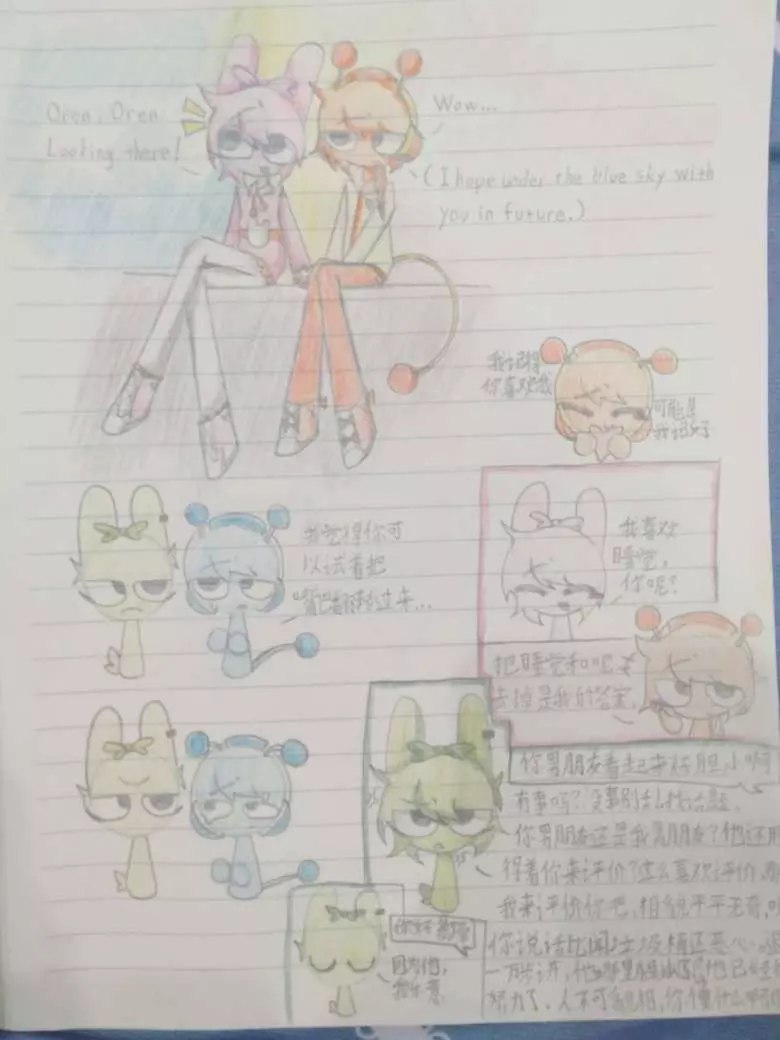 Oren, Oren
Looking there!
Wow...
(I hope under the blue sky with
you in future.)
我记得
你喜欢我
可能是
我记错了
我觉得你可
以试着把
嘴巴翻转过来...
我喜欢
睡觉,
你呢?
把睡觉和吧
去掉是我的答案.
你男朋友看起来好胆小啊
有事吗?没事别乱找话题.
你男朋友还是我男朋友?他还用
得着你来评价?这么喜欢评价,
我来评价你吧,相貌平平无奇,
你说话比闻垃圾桶还恶心,
一万步讲,他哪里胆小了?他已经
努力了,人不可貌相,你懂什么啊
你好暴躁
因为他,
我乐意